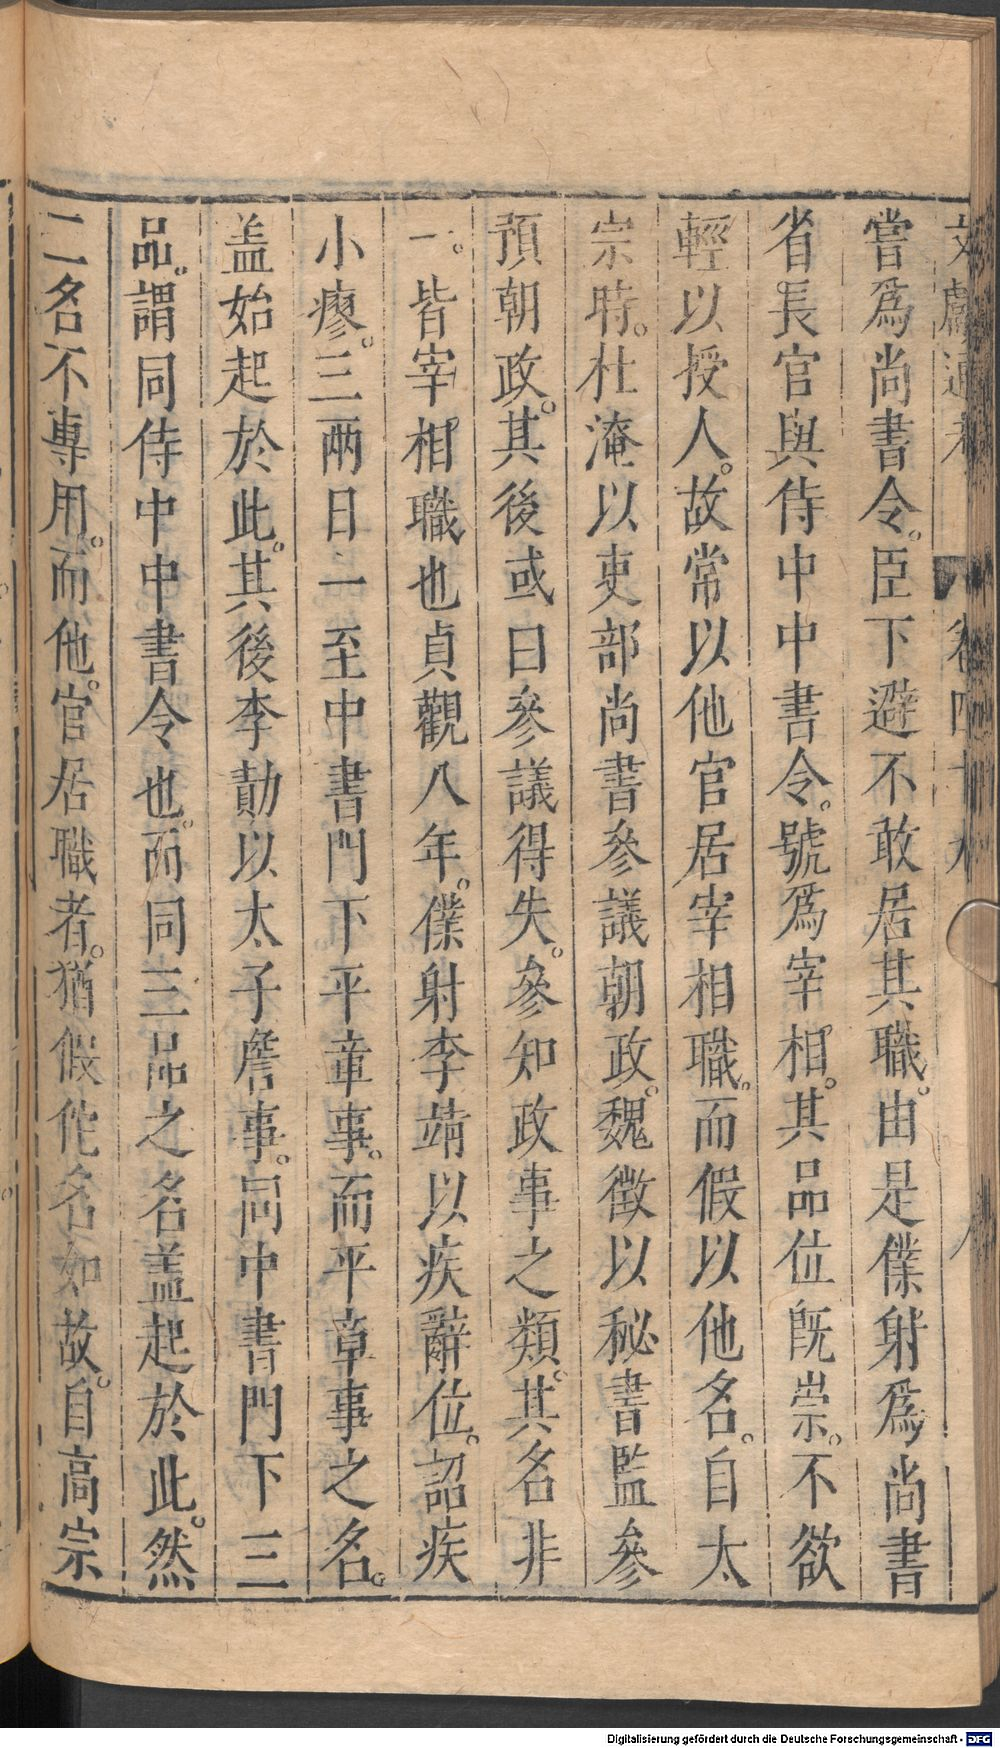 文獻通考 卷四十九
嘗爲尚書令。臣下避不敢居其職。由是僕射爲尚書
省長官與侍中中書令。號爲宰相。其品位旣崇。不欲
輕以授人。故常以他官居宰相職。而假以他名。自太
宗時。杜淹以吏部尚書參議朝政。魏徵以秘書監參
預朝政。其後或曰參議得失。參知政事之類。其名非
一。皆宰相職也貞觀八年。僕射李靖以疾辭位。詔疾
小瘳。三兩日一至中書門下平章事。而平章事之名。
盖始起於此。其後李勣以太子詹事。同中書門下三
品。謂同侍中中書令也。而同三品之名盖起於此。然
二名不專用。而他官居職者。猶假佗名如故。自高宗
Digitalisierung gefördert durch die Deutsche Forschungsgemeinschaft - DFG